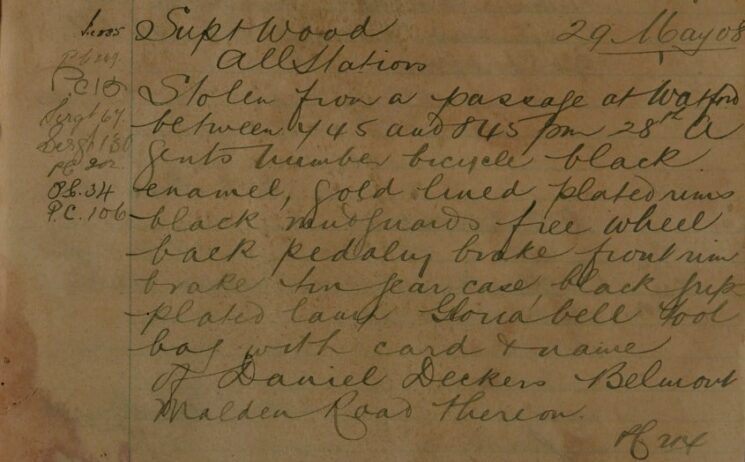 Supt Wood 29 May 08
All Stations
P.C 15 Stolen from a passage at Watford
Sergt 67. between 745 and 845 pm 28th A
Sergt 130 gents Humber bicycle black
PC 202. enamel, gold lined plated rims
P.C. 34 black mudguards free wheel
P.C. 106 back pedaling brake front rim
brake tin gear case, black grip
plated lamp Gloria bell tool
bag with card & name
of Daniel Deckers Belmont
Malden Road thereon.
PC 214